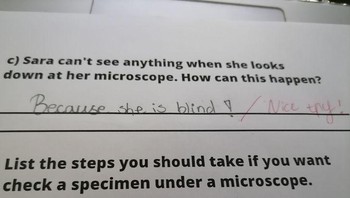 c) Sara can't see anything when she looks
down at her microscope. How can this happen?
Because she is blind ? / Nice try!
List the steps you should take if you want
check a specimen under a microscope.